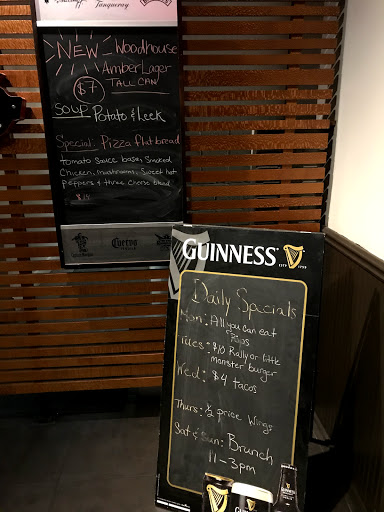 Tanqueray
NEW - Woodhouse
Amber Lager
$7 TALL CAN
SOUP Potato & leek
Special: Pizza flatbread
tomato sauce base, smoked
chicken, mushrooms, sweet hot
peppers & three cheese blend
$14
Cuervo
GUINNESS
ESTD 1759
Daily Specials
Mon: All you can eat
Tues: $10 Rally or little
monster burger
Wed: $4 tacos
Thurs: ½ price Wings
Sat & Sun: Brunch
11-3pm
GUINNESS